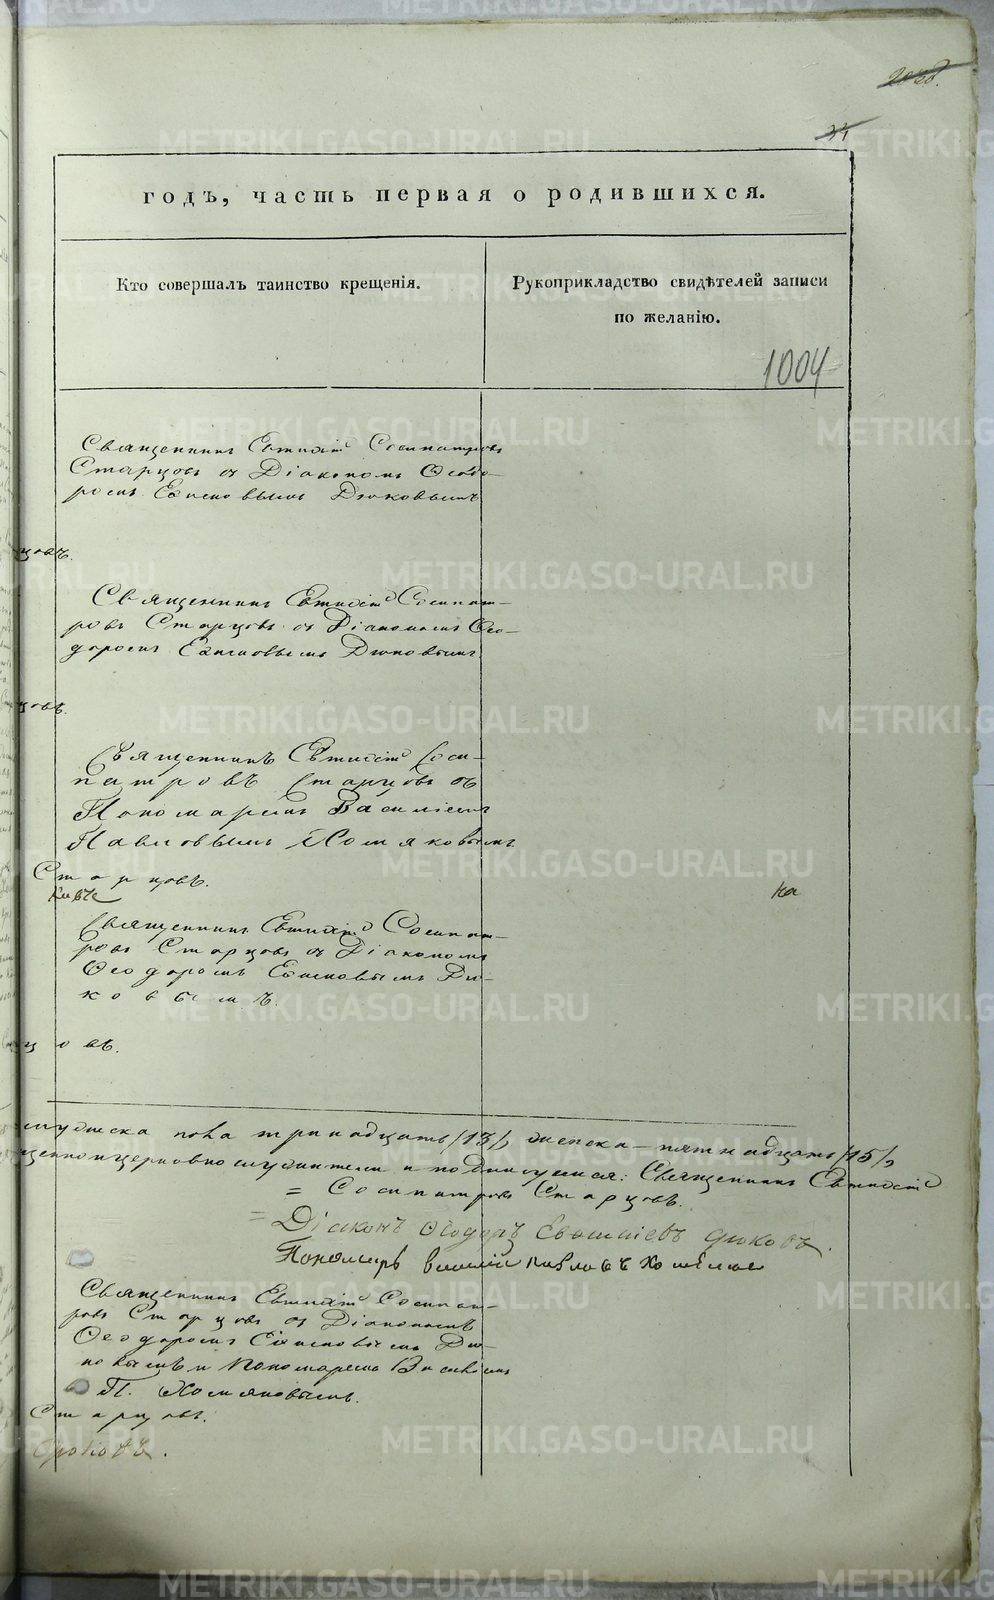 METRIKI.GASO-URAL.RU
годъ, часть первая о родившихся.
Кто совершалъ таинство крещенія.
Рукоприкладство свидѣтелей записи
по желанію.
1004
Священникъ Евтихій Сосипатровъ
Старцовъ съ Діакономъ Ѳеодо-
ромъ Дюковымъ
цовъ.
Священникъ Евтихій Сосипат-
ровъ Старцовъ съ Діакономъ Ѳео-
доромъ Дюковымъ
цовъ.
Священникъ Евтихій Соси-
патровъ Старцовъ съ
Пономаремъ Василіемъ
Павловымъ Хомяковымъ
Старцовъ.
Священникъ Евтихій Сосипат-
ровъ Старцовъ съ Діакономъ
Ѳеодоромъ Дю-
ковымъ.
цовъ.
пола тринадцать /13/, женска – пятнадцать /15/,
и подписуемся: Священникъ Евтихій
= Сосипатровъ Старцовъ.
= Діаконъ Ѳеодоръ Дюковъ.
Пономарь Василій Павловъ Хомяковъ
Священникъ Евтихій Сосипат-
ровъ Старцовъ съ Діакономъ
Ѳеодоромъ Дю-
ковымъ и Пономаремъ Василіемъ
П. Хомяковымъ.
Старцовъ.
Дюковъ.